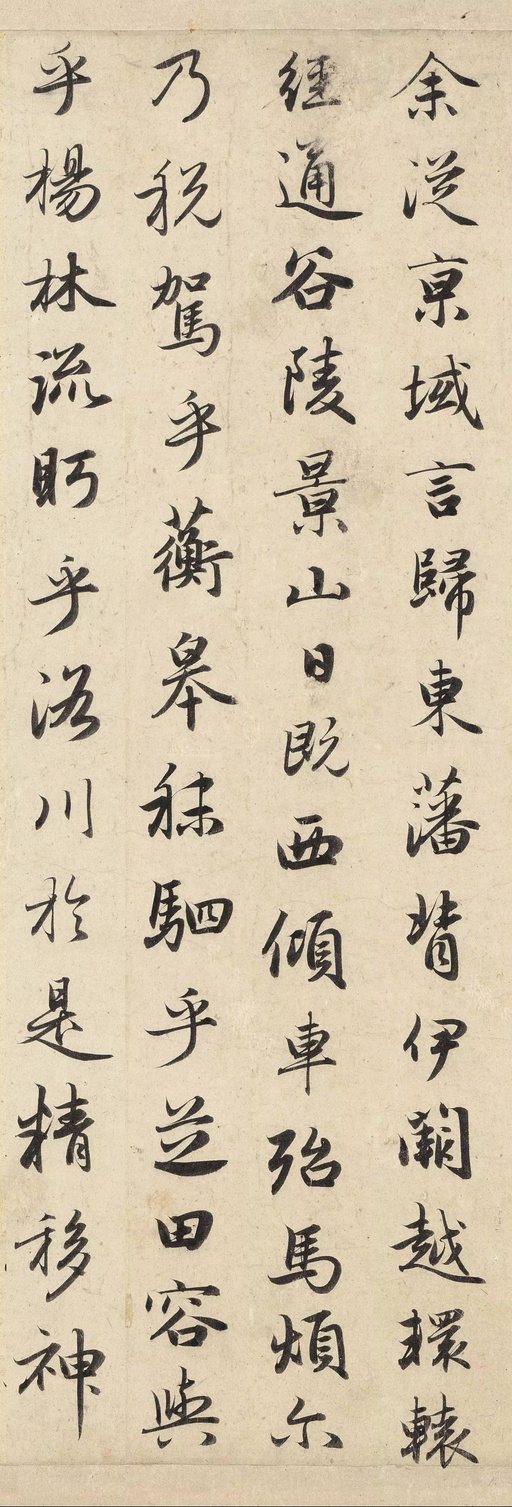 余從京域言歸東藩背伊闕越轘轅
經通谷陵景山日既西傾車殆馬煩尓
乃税駕乎蘅皋秣駟乎芝田容與
乎楊林流眄乎洛川於是精移神